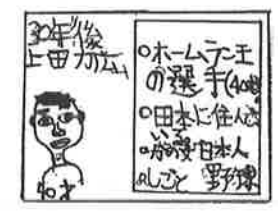 30年後
上田力広
○ホームラン王
の選手(40歳)
○日本に住んで
いて
日本人
しごと 野球